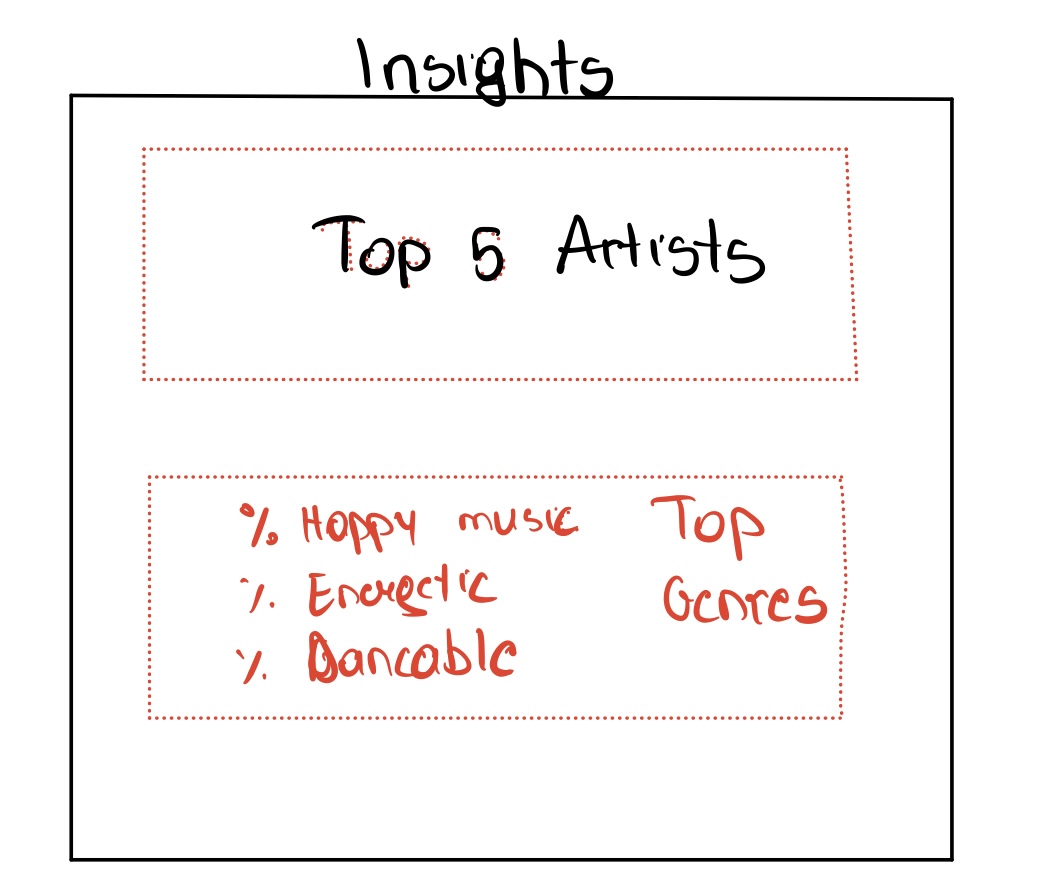 Insights
Top 5 Artists
% Happy music
% Energetic
% Dancable
Top
Genres